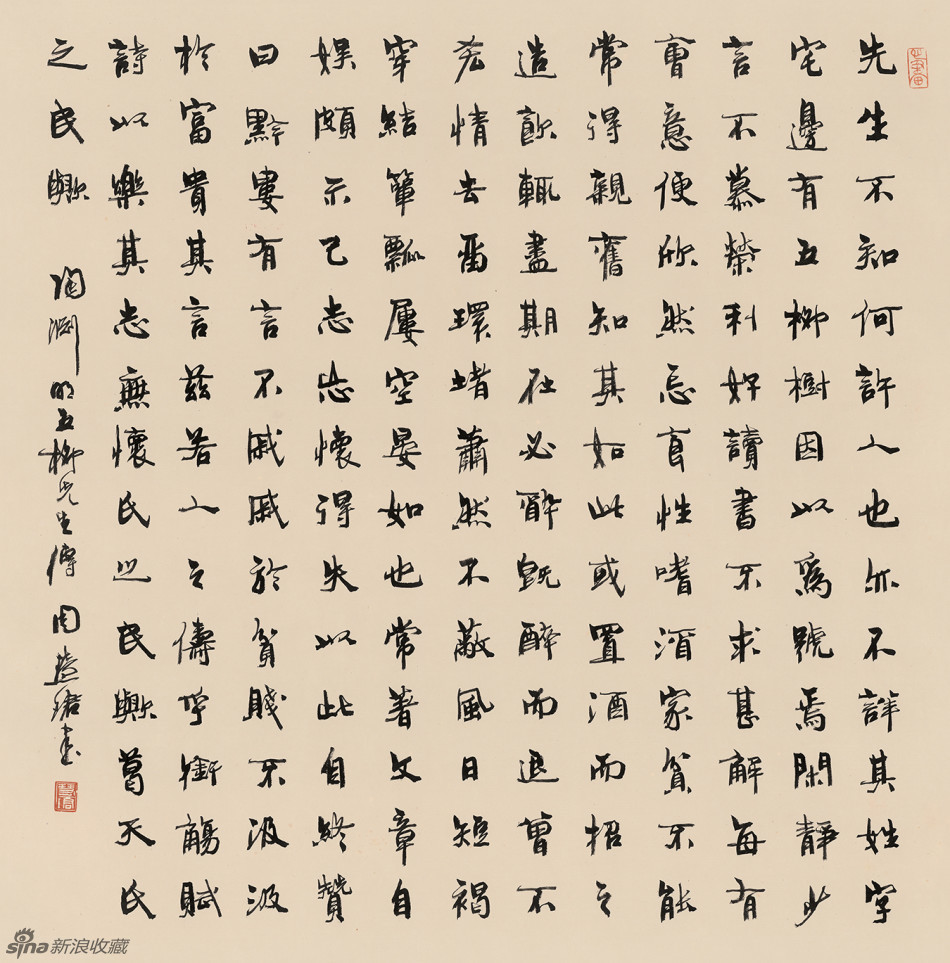 先生不知何許人也亦不詳其姓字
宅邊有五柳樹因以爲號焉閑靜少
言不慕榮利好讀書不求甚解每有
會意便欣然忘食性嗜酒家貧不能
常得親舊知其如此或置酒而招之
造飲輒盡期在必醉既醉而退曾不
吝情去留環堵蕭然不蔽風日短褐
穿結簞瓢屢空晏如也常著文章自
娱頗示己志忘懷得失以此自終贊
曰黔婁有言不戚戚於貧賤不汲汲
於富貴其言茲若人之儔乎銜觴賦
詩以樂其志無懷氏之民歟葛天氏
之民歟 陶淵明五柳先生傳 周慧珺書
sina新浪收藏